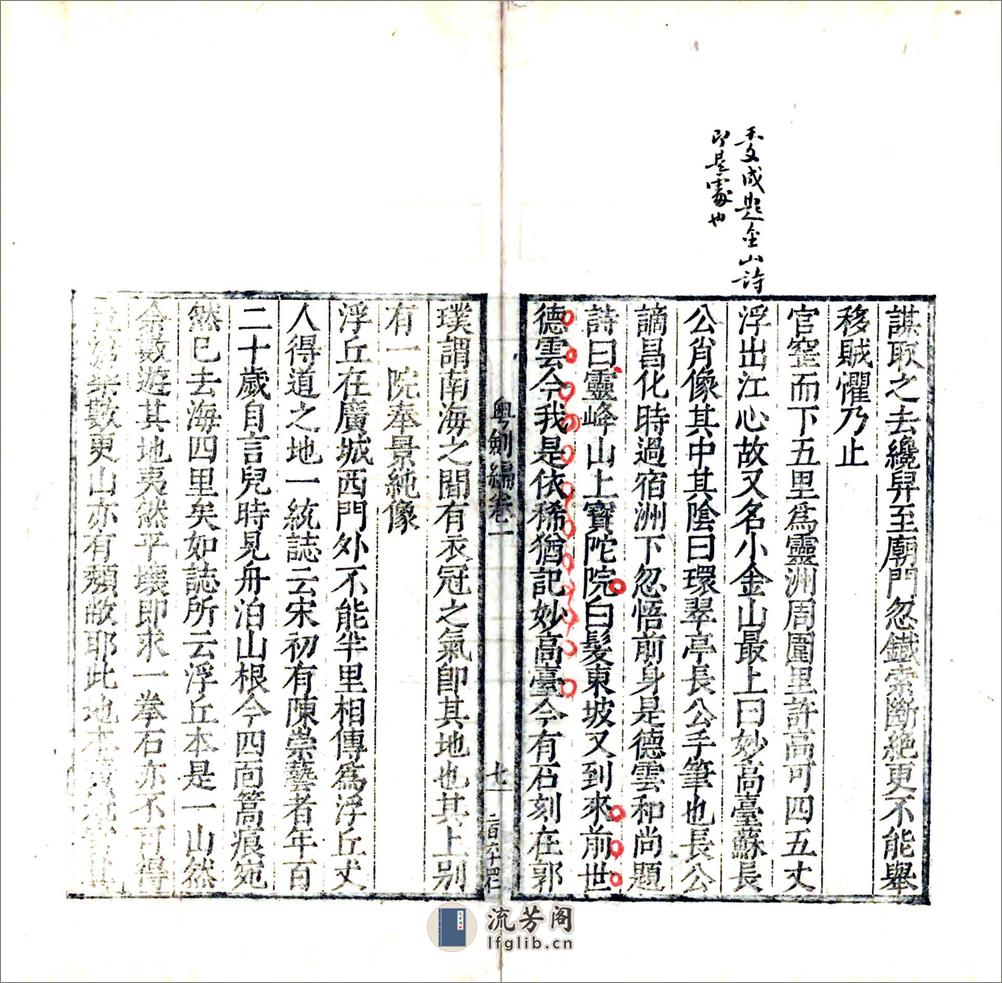 王文成題金山詩
即是處也
謀取之去纔舁至廟門忽鐵索斷絕更不能舉
移賊懼乃止
官窰而下五里為靈洲周圍里許高可四五丈
浮出江心故又名小金山最上曰妙高臺蘇長
公肖像其中其陰曰環翠亭長公手筆也長公
謫昌化時過宿洲下忽悟前身是德雲和尚題
詩曰靈峰山上寶陀院白髮東坡又到來前世
德雲今我是依稀猶記妙高臺今有石刻在郭
粵劍編卷一
七
璞謂南海之間有衣冠之氣即其地也其上別
有一院奉景純像
浮丘在廣城西門外不能半里相傳為浮丘丈
人得道之地一統誌云宋初有陳崇藝者年百
二十歲自言兒時見舟泊山根今四面篙痕宛
然已去海四里矣如誌所云浮丘本是一山然
余數遊其地夷然平壤即求一拳石亦不可得
數更山亦有頹故耶此地本
流芳阁
lfglib.cn